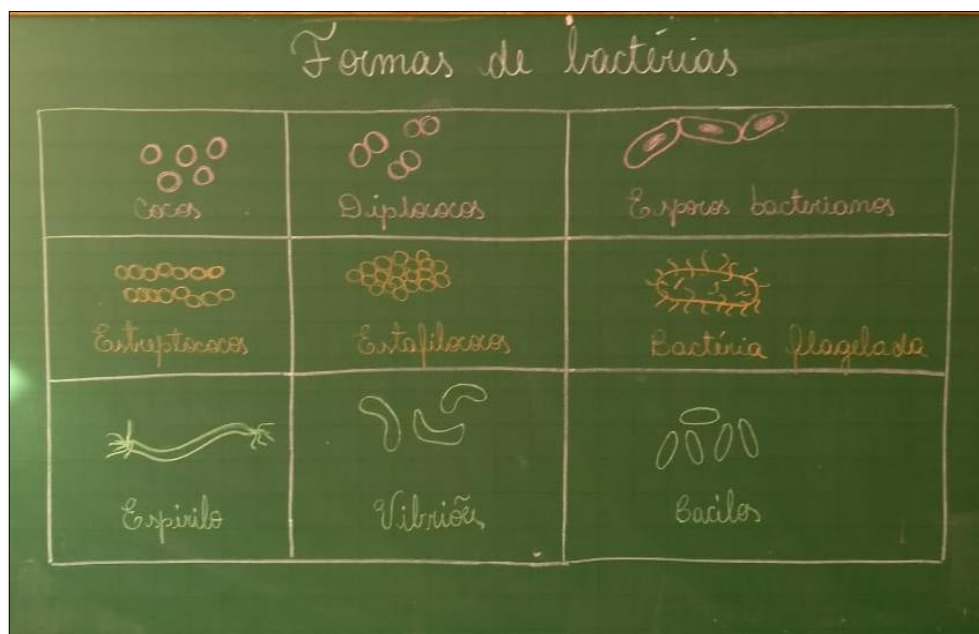 Formas de bactérias
Cocos
Diplococos
Esporos bacterianos
Estreptococos
Estafilococos
Bactéria flagelada
Espirilo
Vibriões
Bacilos